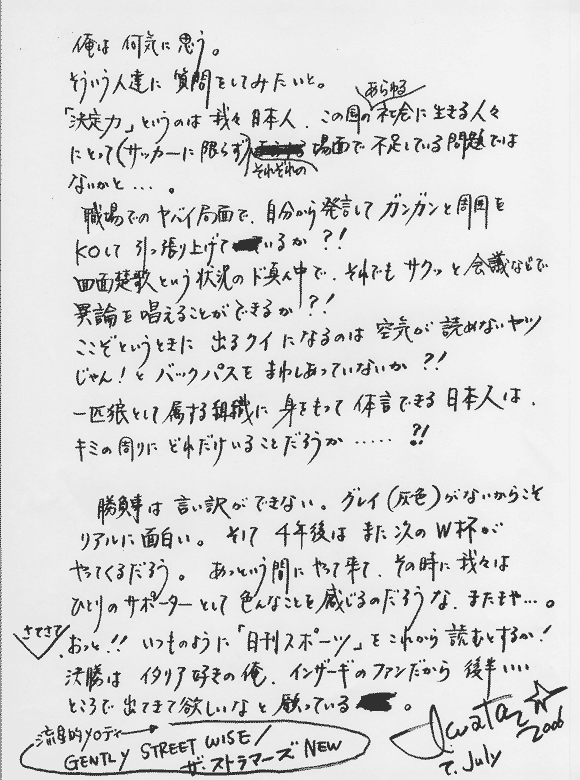 俺は 何気に思う。
そういう人達に 質問をしてみたいと。
「決定力」というのは 我々 日本人、この国の あらゆる 社会に生きる人々
にとって(サッカーに限らず) それぞれの 場面で 不足している問題では
ないかと…。
職場でのヤバイ局面で、自分から発言して ガンガンと周囲を
KOして 引っ張り上げているか?!
四面楚歌という状況の ド真ん中で、それでも サクッと会議などで
異論を唱えることができるか?!
ここぞというときに 出るクイになるのは 空気が読めないヤツ
じゃん!と バックパスをまわしあっていないか?!
一匹狼として属する組織に 身をもって体言できる日本人は、
キミの周りに どれだけいることだろうか……?!
勝負事は言い訳ができない。グレイ(灰色)がないからこそ
リアルに面白い。そして 4年後は また次のW杯が
やってくるだろう。あっという間にやって来て、その時に我々は
ひとりのサポーターとして 色んなことを感じるのだろうな、またもや…。
さてさて
おっと!! いつものように「日刊スポーツ」をこれから読むとするか!
決勝は イタリア好きの俺、インザーギのファンだから 後半いい
ところで出てきて欲しいなと 願っている。
流星的メロディー
GENTLY STREET WISE/
ザ・ストラマーズ NEW
2006
July